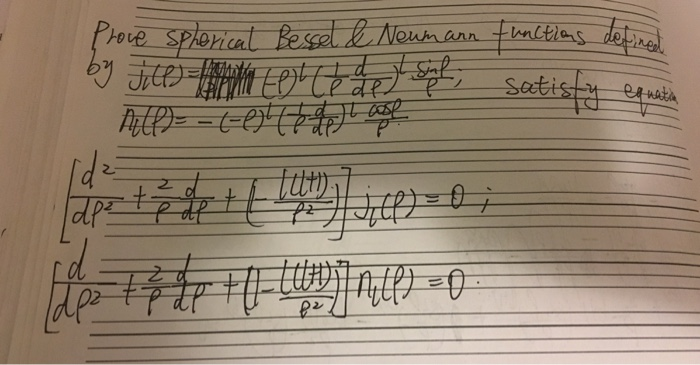 Prove spherical Bessel & Neumann functions defined
by jₗ(ρ) = (-ρ)ˡ (1/ρ d/dρ)ˡ sinρ/ρ; satisfy equation
nₗ(ρ) = -(-ρ)ˡ (1/ρ d/dρ)ˡ cosρ/ρ.
[d²/dρ² + 2/ρ d/dρ + (1 - l(l+1)/ρ²)] jₗ(ρ) = 0;
[d/dρ² + 2/ρ d/dρ + (1 - l(l+1)/ρ²)] nₗ(ρ) = 0.